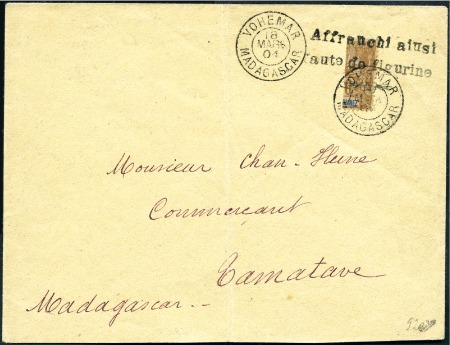 VOHEMAR
18
MARS
04
MADAGASCAR
Affranchi aiusi
faute de figurine
VOHEMAR
MADAGASCAR
Monsieur Chan-Heine
Commerçant
Tamatave
Madagascar